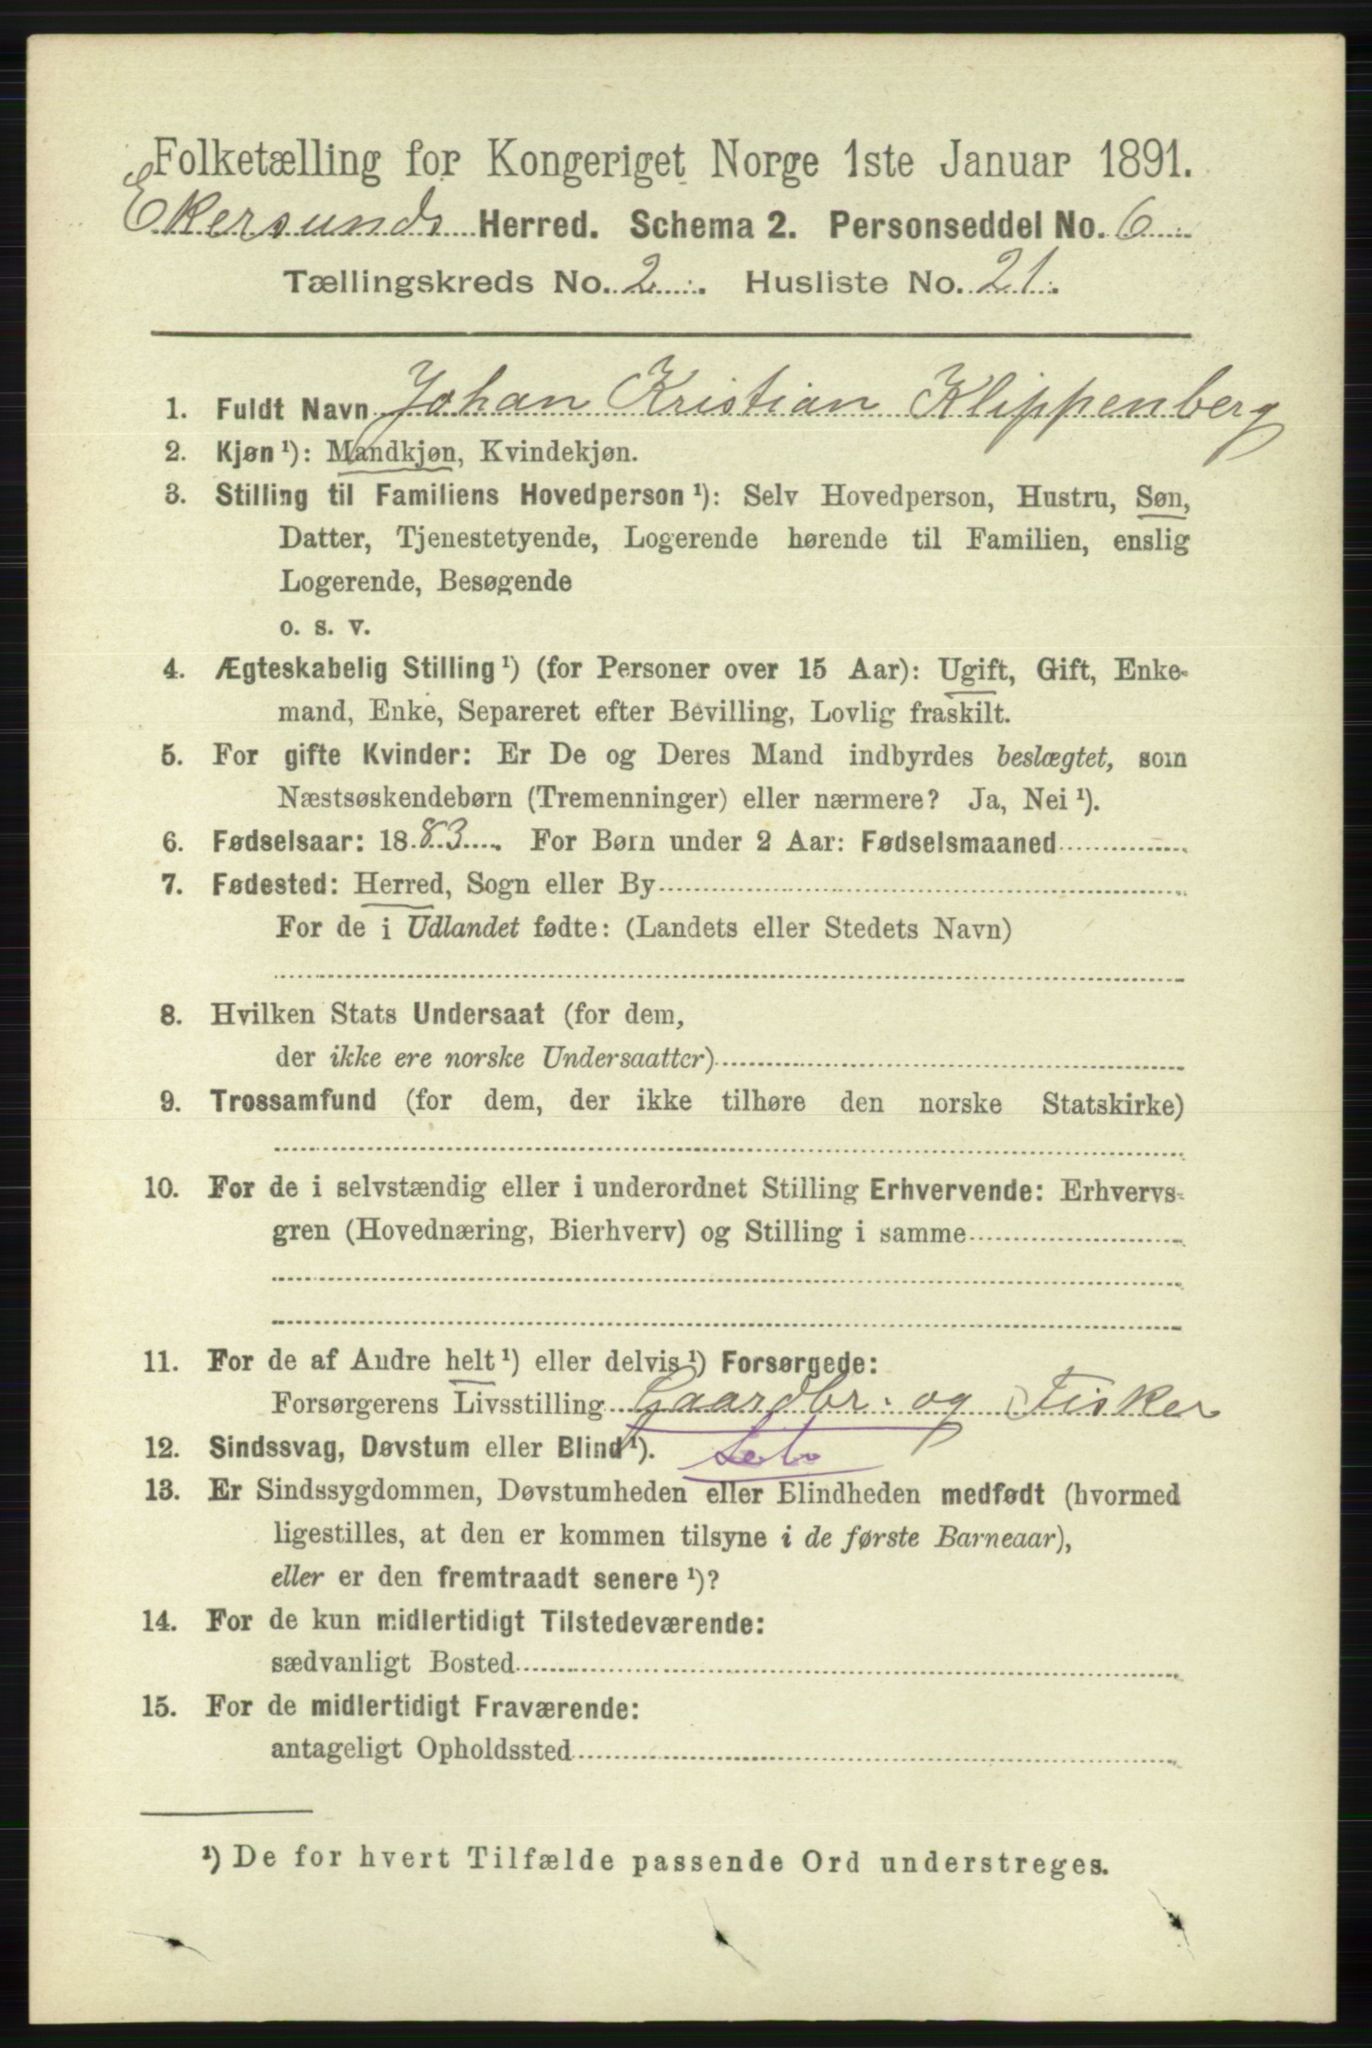 Folketælling for Kongeriget Norge 1ste Januar 1891.
Ekersunds Herred. Schema 2. Personseddel No. 6
Tællingskreds No. 2. Husliste No. 21.
1. Fuldt Navn Johan Kristian Klippenberg
2. Kjøn ¹): Mandkjøn, Kvindekjøn.
3. Stilling til Familiens Hovedperson ¹): Selv Hovedperson, Hustru, Søn,
Datter, Tjenestetyende, Logerende hørende til Familien, enslig
Logerende, Besøgende
o. s. v.
4. Ægteskabelig Stilling ¹) (for Personer over 15 Aar): Ugift, Gift, Enke-
mand, Enke, Separeret efter Bevilling, Lovlig fraskilt.
5. For gifte Kvinder: Er De og Deres Mand indbyrdes beslægtet, som
Næstsøskendebørn (Tremenninger) eller nærmere? Ja, Nei ¹).
6. Fødselsaar: 1883. For Børn under 2 Aar: Fødselsmaaned
7. Fødested: Herred, Sogn eller By
For de i Udlandet fødte: (Landets eller Stedets Navn)
8. Hvilken Stats Undersaat (for dem,
der ikke ere norske Undersaatter)
9. Trossamfund (for dem, der ikke tilhøre den norske Statskirke)
10. For de i selvstændig eller i underordnet Stilling Erhvervende: Erhvervs-
gren (Hovednæring, Bierhverv) og Stilling i samme
11. For de af Andre helt ¹) eller delvis ¹) Forsørgede:
Forsørgerens Livsstilling Gaardbr. og Fisker
12. Sindssvag, Døvstum eller Blind ¹).
13. Er Sindssygdommen, Døvstumheden eller Blindheden medfødt (hvormed
ligestilles, at den er kommen tilsyne i de første Barneaar),
eller er den fremtraadt senere ¹)?
14. For de kun midlertidigt Tilstedeværende:
sædvanligt Bosted
15. For de midlertidigt Fraværende:
antageligt Opholdssted
¹) De for hvert Tilfælde passende Ord understreges.